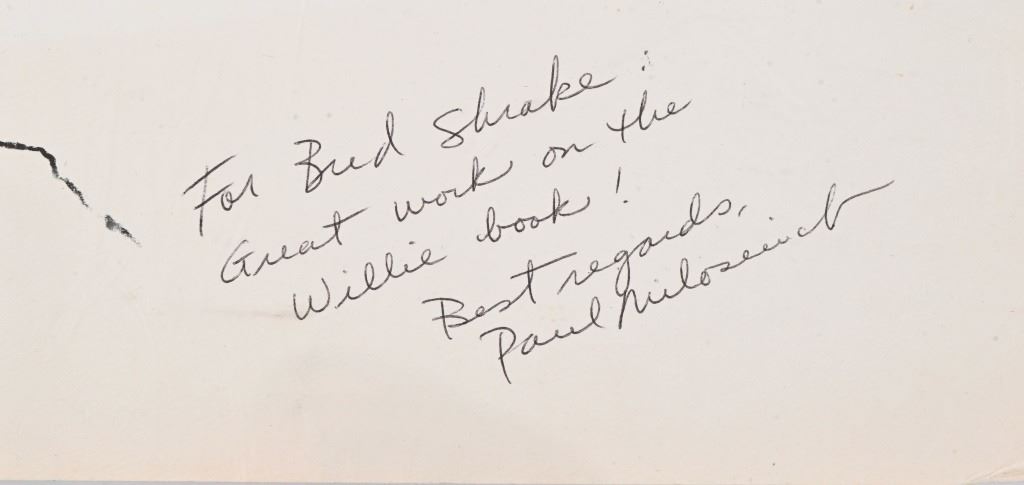 For Bud Shrake:
Great work on the
Willie book!
Best regards,
Paul Milosevich